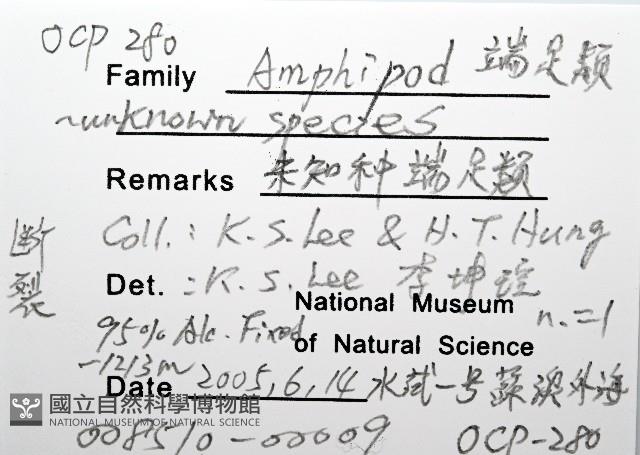 OCP 280
Family Amphipod 端足類
~unknown species
Remarks 未知种端足類
Coll.: K.S.Lee & H.T.Hung
断裂
Det. : K.S.Lee 李坤瑄
National Museum of Natural Science
n.=1
95% Alc. Fixed
-1213m
Date 2005,6,14 水試一号 蘇澳外海
國立自然科學博物館
NATIONAL MUSEUM OF NATURAL SCIENCE
008510-00009 OCP-280